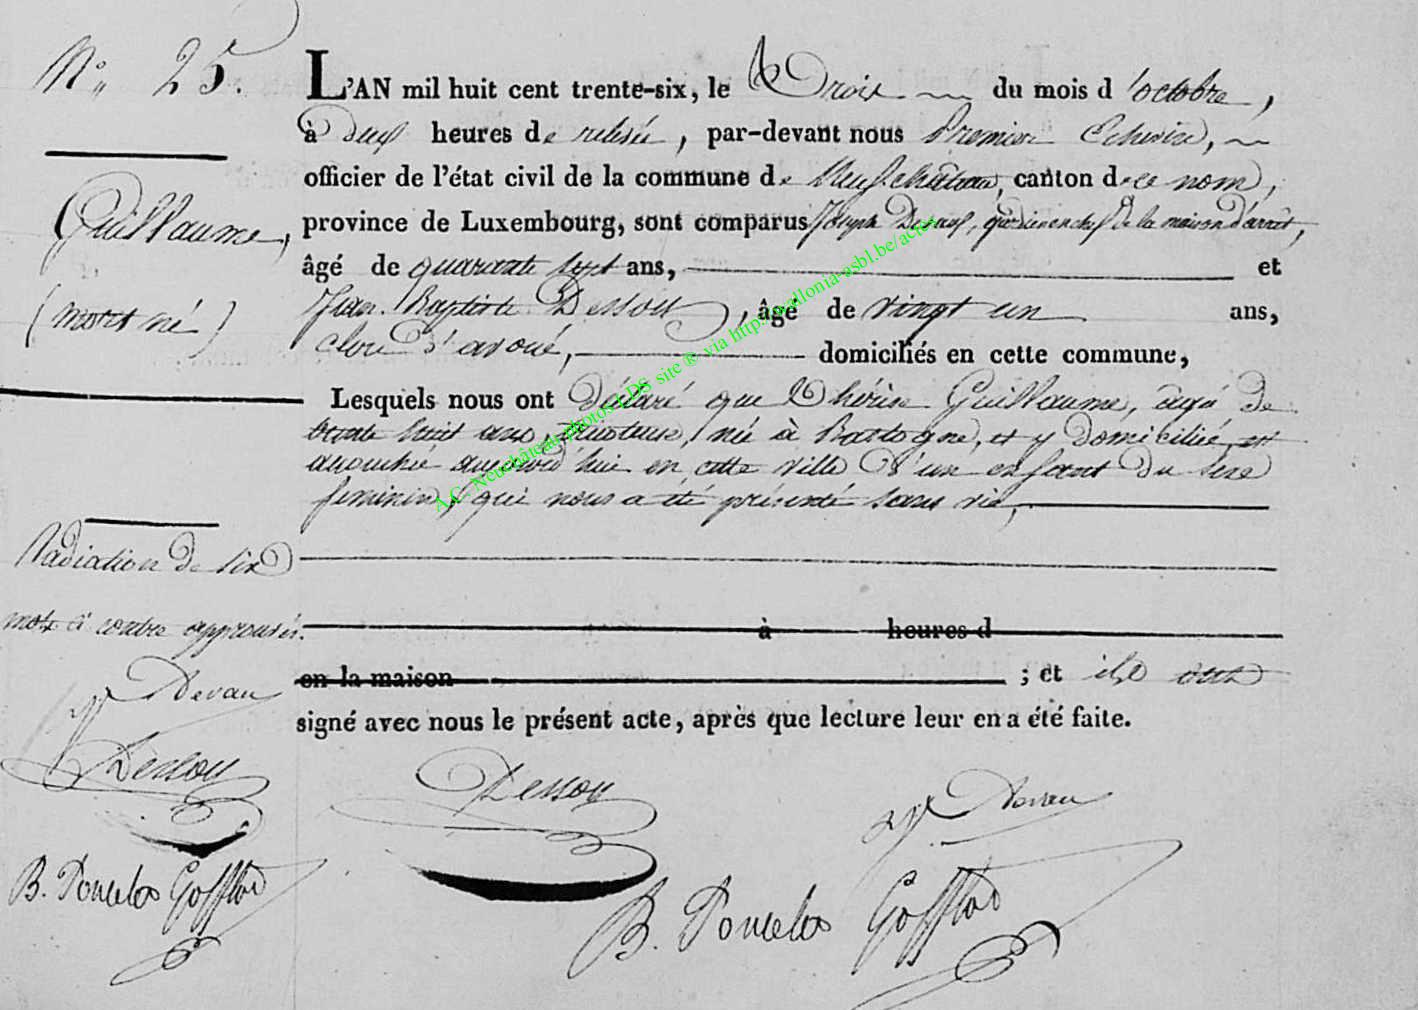 N° 25.
L'AN mil huit cent trente-six, le Trois du mois d'octobre,
à deux heures de relevée, par-devant nous Premier Echevin,
officier de l'état civil de la commune de Neufchâteau, canton de ce nom,
Guillaume,
province de Luxembourg, sont comparus Joseph gardien en chef de la maison d'arrêt,
âgé de quarante sept ans, et
(mort né)
Jean Baptiste Dessoy, âgé de vingt un ans,
clerc d'avoué, domiciliés en cette commune,
Lesquels nous ont déclaré que Thérèse Guillaume, âgée de
trente huit ans, tricoteuse, née à Bastogne, et y domiciliée, est
accouchée aujourd'hui en cette ville d'un enfant du sexe
féminin, qui nous a été présenté sans vie,
Radiation de six
mots ci contre approuvés.
à heures d
en la maison ; et ils ont
signé avec nous le présent acte, après que lecture leur en a été faite.
Devau
Dessoy
Dessoy
Devau
B. Poncelet Gofflot
B. Poncelet Gofflot
A.C. Neufchâteau photos LDS site ® via http://wallonia-asbl.be/actes